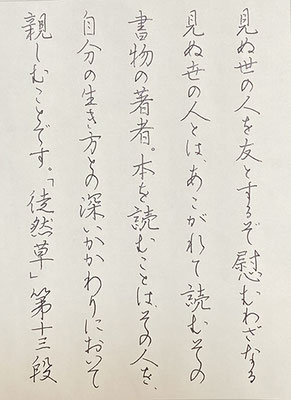 見ぬ世の人を友とするぞ慰むわざなる
見ぬ世の人とは、あこがれて読むその
書物の著者。本を読むことは、その人を、
自分の生き方との深いかかわりにおいて
親しむことです。「徒然草」第十三段